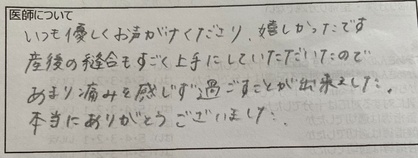 医師について
いつも優しくお声がけくださり、嬉しかったです
産後の縫合もすごく上手にしていただいたので
あまり痛みを感じず過ごすことが出来ました。
本当にありがとうございました。